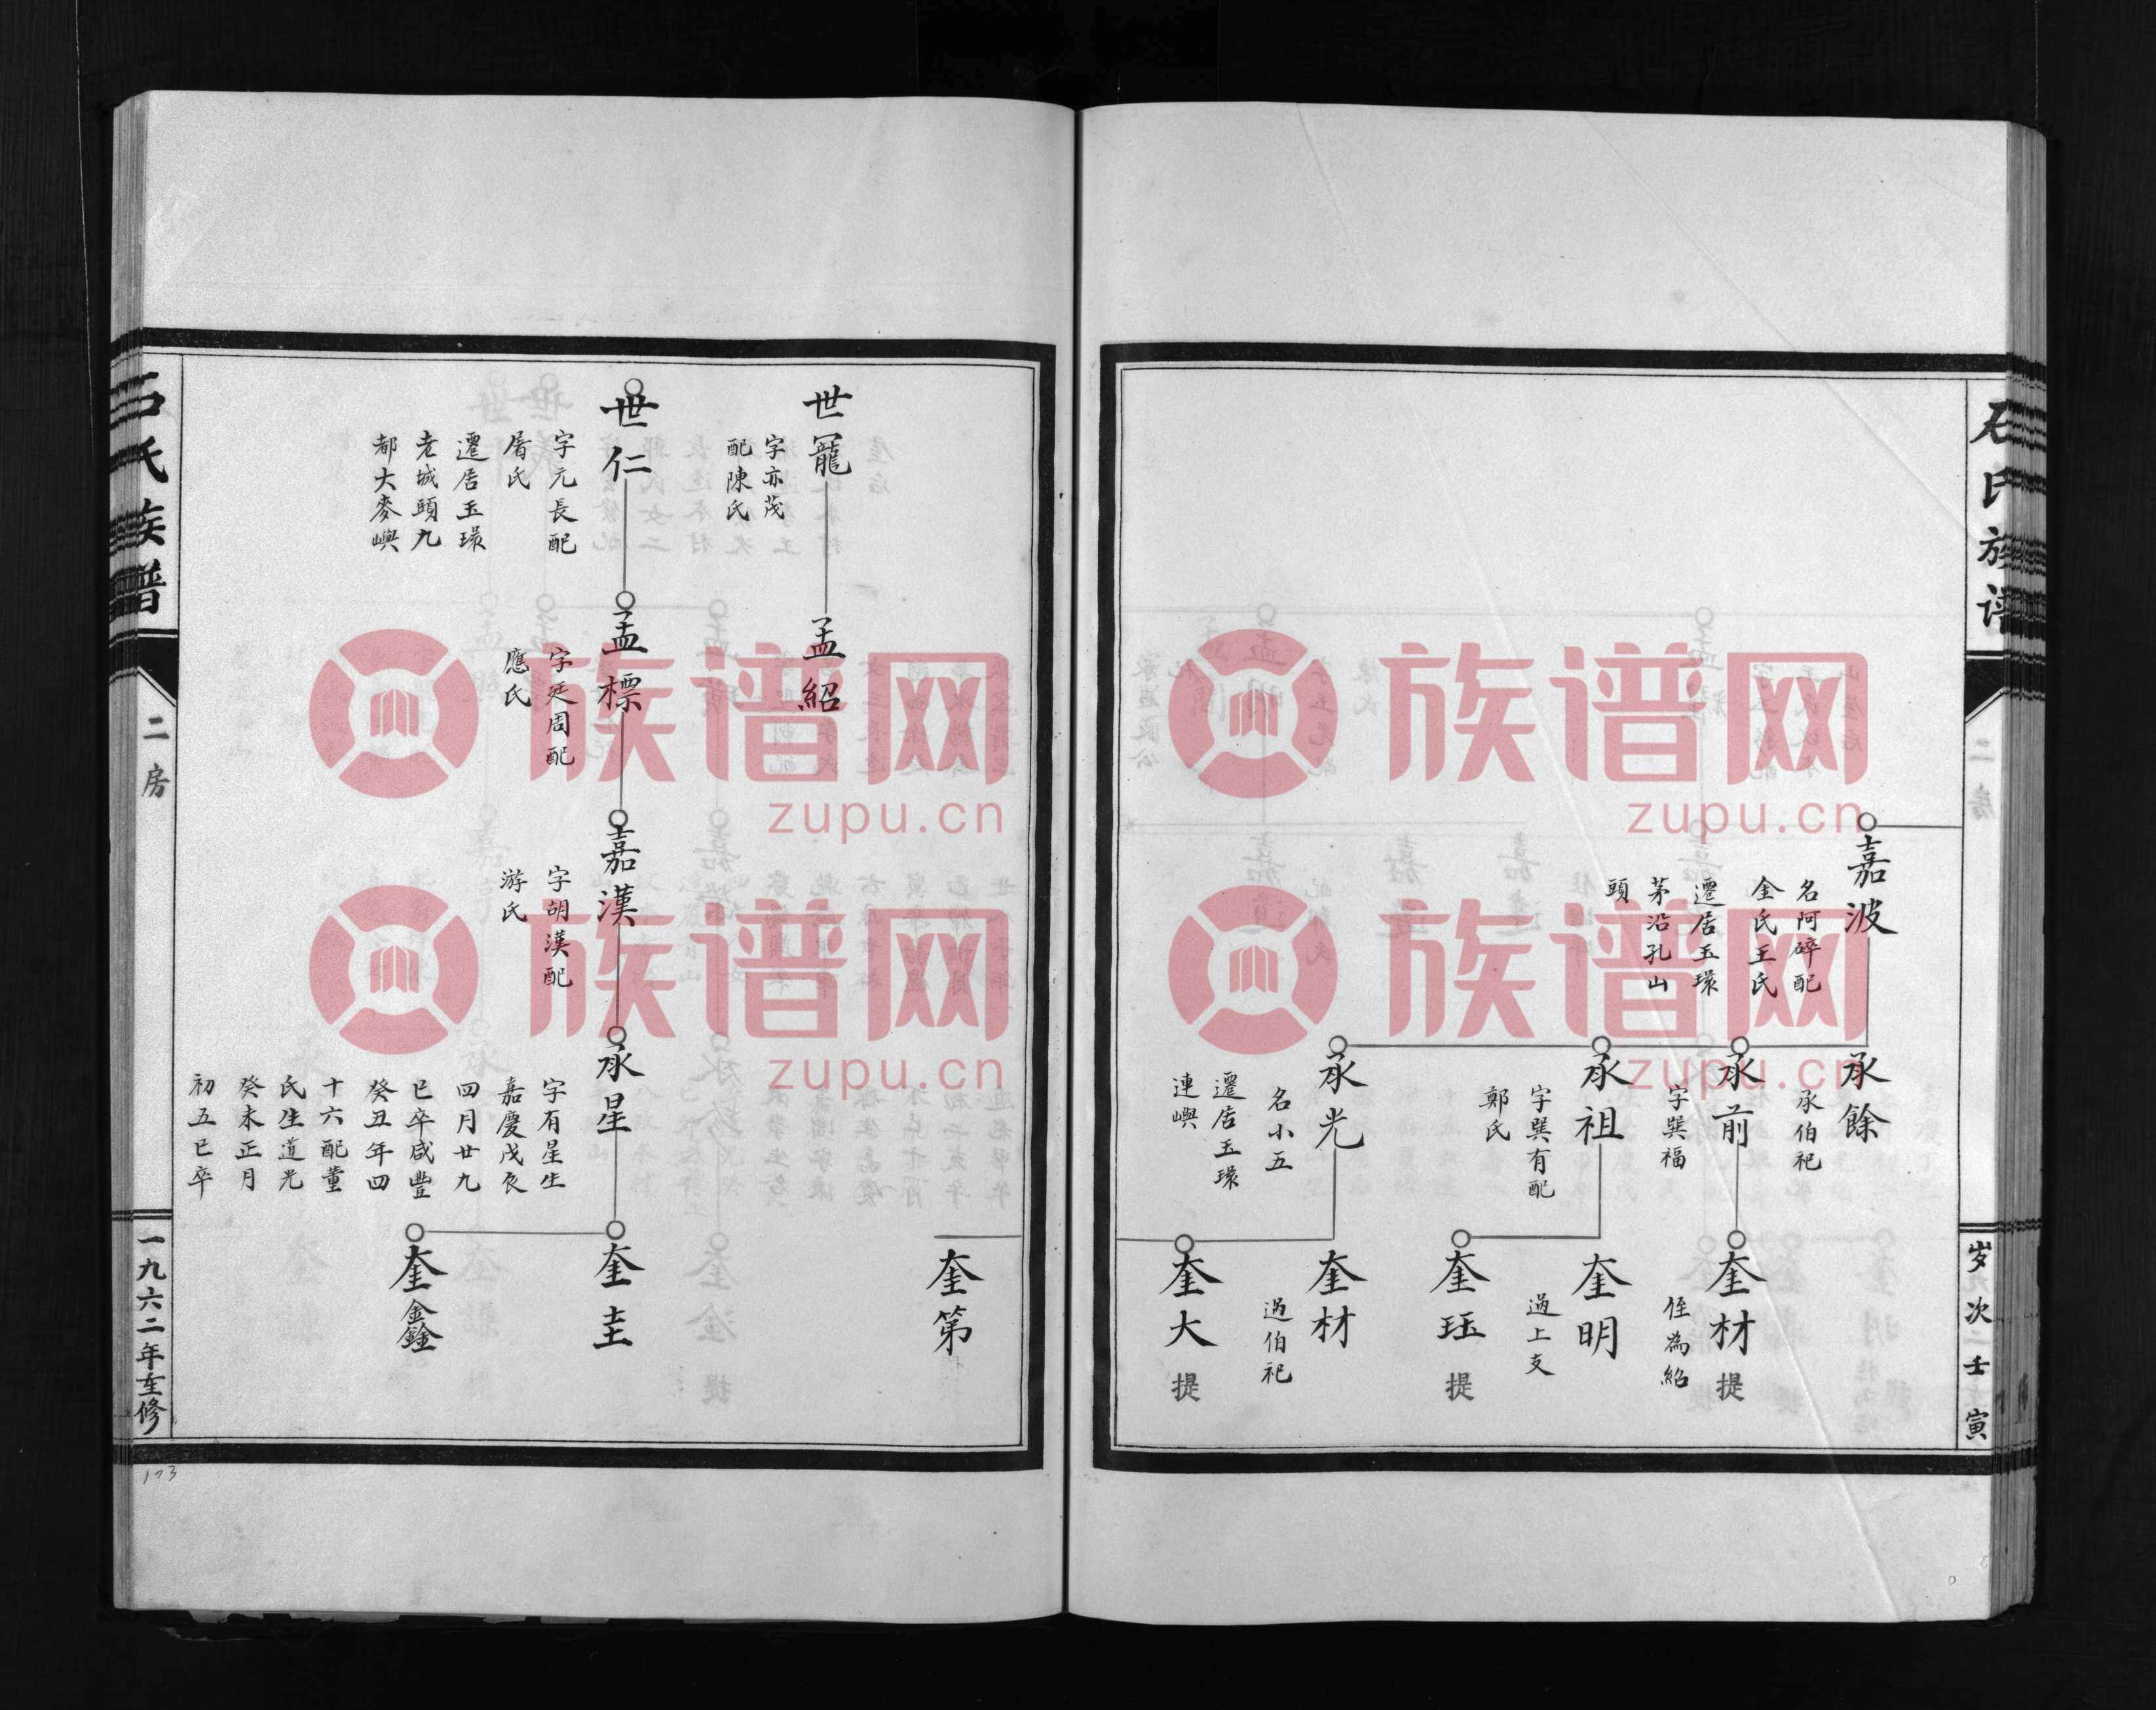 石氏族谱
二房
岁次壬寅
嘉波
名阿碎配
金氏王氏
遷居玉環
茅沿孔山
頭
承餘
承伯祀
承前
字巽福
奎材
侄為紹
提
承祖
字巽有配
鄭氏
奎明
過上支
奎玨
提
承光
名小五
遷居玉環
連嶼
奎材
過伯祀
奎大
提
奎第
世寵
字亦茂
配陳氏
孟紹
世仁
字元長配
屠氏
遷居玉環
老城頭九
都大麥嶼
孟標
字延周配
應氏
嘉漢
字胡漢配
游氏
承星
字有星生
嘉慶戊辰
四月廿九
巳卒咸豐
癸丑年四
十六配董
氏生道光
癸未正月
初五巳卒
奎圭
奎鑫
石氏族譜
二房
一九六二年重修
173
族谱网
zupu.cn
族谱网
zupu.cn
族谱网
zupu.cn
族谱网
zupu.cn